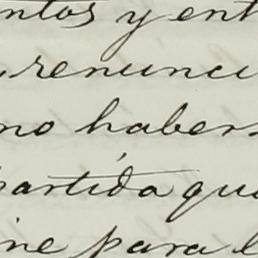 ntos y ent
renunci
no habers
partida que
ine para l